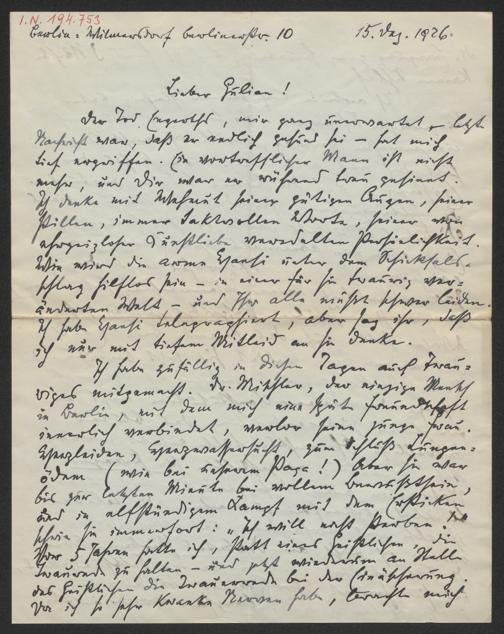 I.N. 194.753
Berlin-Wilmersdorf Berlinerstr. 10 15. Dez. 1926.
Lieber Gulian!
Der Tod Engerths, mir ganz unerwartet – letzte
Nachricht war, daß er endlich gesund sei – hat mich
tief ergriffen. Ein vortrefflicher Mann ist nicht
mehr, und Dir war er während treu gesinnt.
Ich denke mit Wehmut seiner gütigen Augen, seiner
stillen, immer taktvollen Worte, seiner von
ehrgeizloser Kunstliebe veredelten Persönlichkeit.
Wie wird die arme Hansi unter dem Schicksals-
schlag hilflos sein – in einer für sie traurig ver-
änderten Welt – und Ihr alle müßt schwer leiden.
Ich habe Hansi telegraphiert, aber sag ihr, daß
ich nur mit tiefem Mitleid an sie denke.
Ich habe zufällig in diesen Tagen auch Trau-
riges mitgemacht. Dr. der einzige Mensch
in Berlin, mit dem mich eine späte Freundschaft
innerlich verbindet, verlor seine junge Frau.
Herzleiden, Herzwassersucht, zum Schluß Lungen-
ödem (wie bei unserem Papa!) Aber sie war
bis zur letzten Minute bei vollem Bewusstsein,
und in elfstündigem Kampf mit dem Ersticken
schrie sie immerfort: „Ich will nicht sterben."
Vor 5 Jahren hatte ich, statt eines Geistlichen, die
Traurede zu halten – und jetzt wiederum an Stelle
des Geistlichen die Trauerrede bei der Einäscherung.
Da ich so sehr kranke Nerven habe, brachte mich